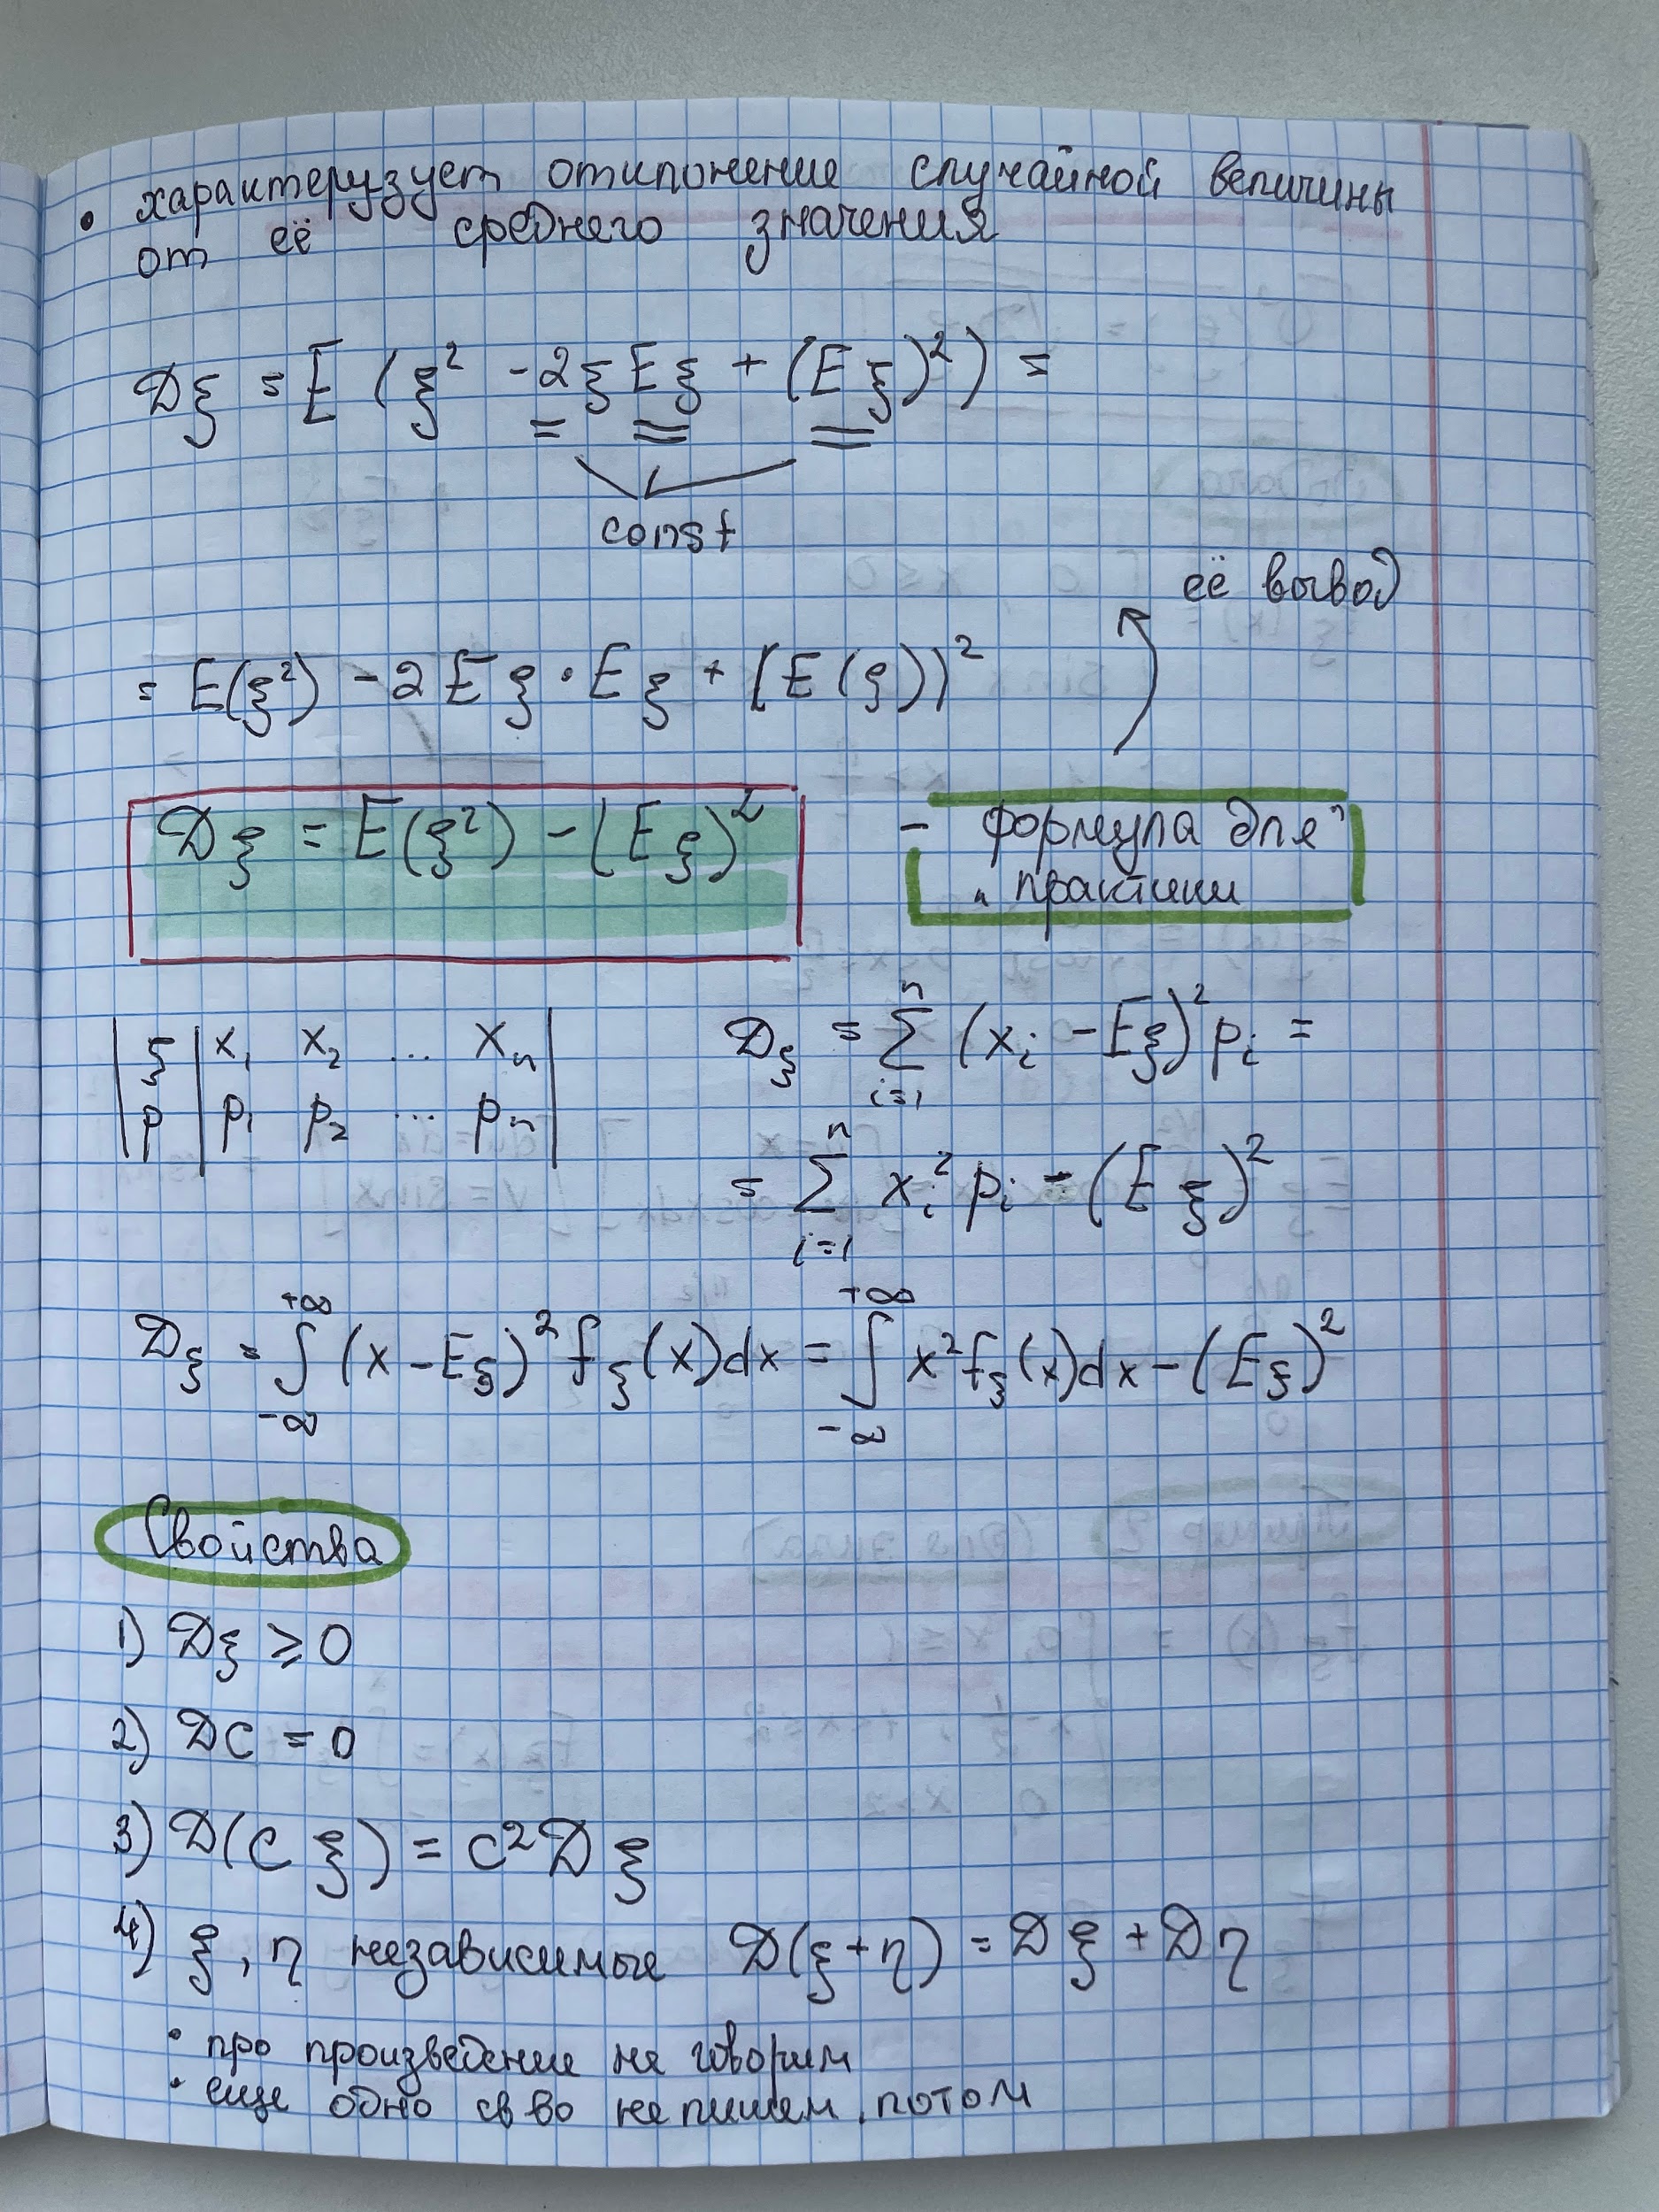 • характерузует отклонение случайной величины
от её среднего значения
Dξ = E (ξ² - 2ξEξ + (Eξ)²) =
const
её вывод
= E(ξ²) - 2Eξ·Eξ + (E(ξ))²
Dξ = E(ξ²) - (Eξ)² - формула для
практики
ξ | x₁ x₂ ... xₙ
p | p₁ p₂ ... pₙ
Dξ = ∑ᵢ₌₁ⁿ (xᵢ - Eξ)² pᵢ =
= ∑ᵢ₌₁ⁿ xᵢ² pᵢ - (Eξ)²
Dξ = ∫₋∞⁺∞ (x - Eξ)² f_ξ(x)dx = ∫₋∞⁺∞ x² f_ξ(x)dx - (Eξ)²
Свойства
1) Dξ ⩾ 0
2) DC = 0
3) D(Cξ) = C²Dξ
4) ξ, η независимые D(ξ+η) = Dξ + Dη
• про произведение не говорим
• еще одно св во не пишем, потом